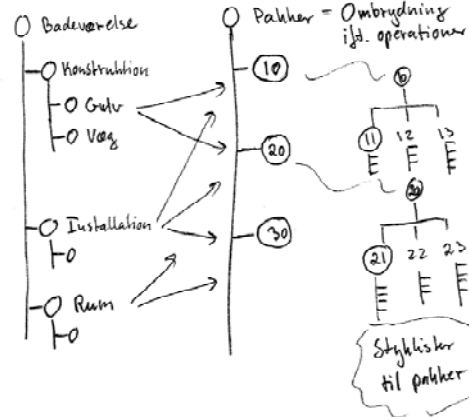 Badeværelse
Konstruktion
Gulv
Væg
Installation
Rum
Pakker = Ombrydning
ift. operationer
10
20
30
10
11 12 13
20
21 22 23
Styklister
til pakker